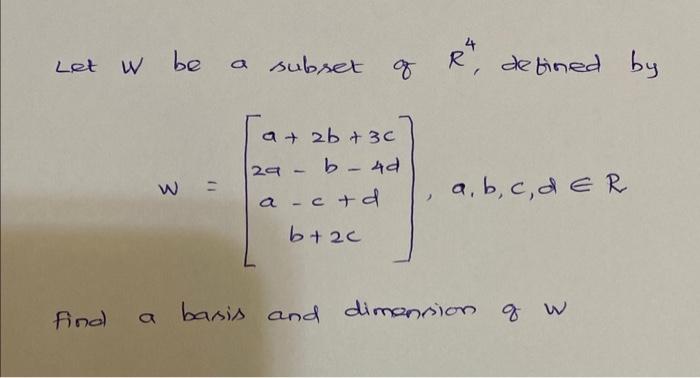 Let W be a subset of R⁴, defined by
a + 2b + 3c
2a - b - 4d
W = a - c + d , a, b, c, d ∈ R
b + 2c
find a basis and dimension of W